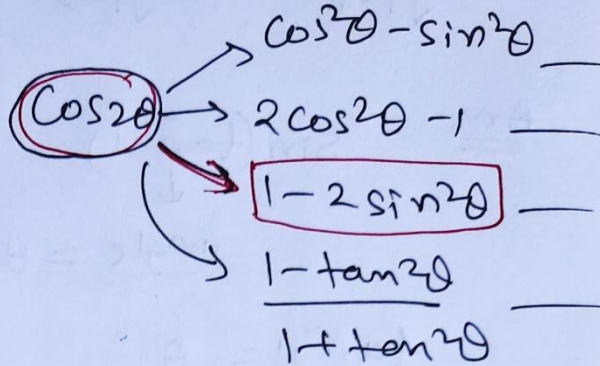 cos²θ - sin²θ
Cos2θ
2cos²θ - 1
1 - 2 sin²θ
1 - tan²θ
1 + tan²θ